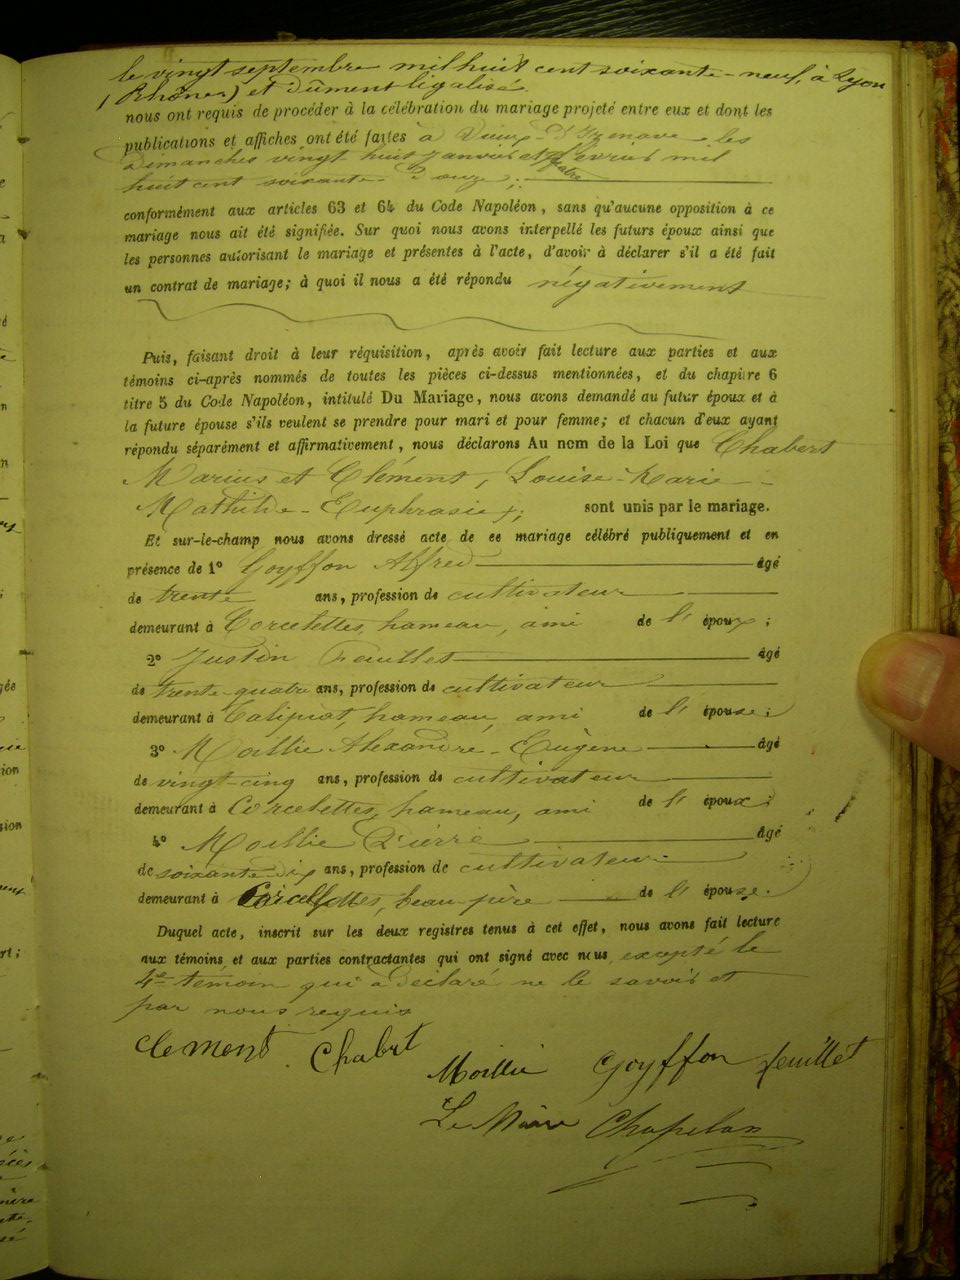 le vingt septembre mil huit cent soixante-neuf, à Lyon
(Rhône) et dûment légalisé.
nous ont requis de procéder à la célébration du mariage projeté entre eux et dont les
publications et affiches ont été faites à Vieux-d'Izenave les
Dimanches vingt huit Janvier et quatre février mil
huit cent soixante-Douze ;
conformément aux articles 63 et 64 du Code Napoléon, sans qu'aucune opposition à ce
mariage nous ait été signifiée. Sur quoi nous avons interpellé les futurs époux ainsi que
les personnes autorisant le mariage et présentes à l'acte, d'avoir à déclarer s'il a été fait
un contrat de mariage; à quoi il nous a été répondu négativement
Puis, faisant droit à leur réquisition, après avoir fait lecture aux parties et aux
témoins ci-après nommés de toutes les pièces ci-dessus mentionnées, et du chapitre 6
titre 5 du Code Napoléon, intitulé Du Mariage, nous avons demandé au futur époux et à
la future épouse s'ils veulent se prendre pour mari et pour femme; et chacun d'eux ayant
répondu séparément et affirmativement, nous déclarons Au nom de la Loi que Chabert
Marius et Clément, Louise-Marie
Mathilde-Euphrasie ; sont unis par le mariage.
Et sur-le-champ nous avons dressé acte de ce mariage célébré publiquement et en
présence de 1° Goyffon Alfred âgé
de trente ans, profession de cultivateur
demeurant à Corcelettes, hameau, ami de l'époux ;
2° Justin Feuillet âgé
de trente-quatre ans, profession de cultivateur
demeurant à Talipiat, hameau, ami de l'épouse ;
3° Moillie Alexandre-Eugène âgé
de vingt-cinq ans, profession de cultivateur
demeurant à Corcelettes, hameau, ami de l'époux ;
4° Moillie Pierre âgé
de soixante-dix ans, profession de cultivateur
demeurant à Corcelettes, beau père de l'épouse.
Duquel acte, inscrit sur les deux registres tenus à cet effet, nous avons fait lecture
aux témoins et aux parties contractantes qui ont signé avec nous excepté le
4e témoin qui a déclaré ne le savoir et
par nous requis
Clement Chabert
Moillie Goyffon feuillet
Le Maire Chapelan